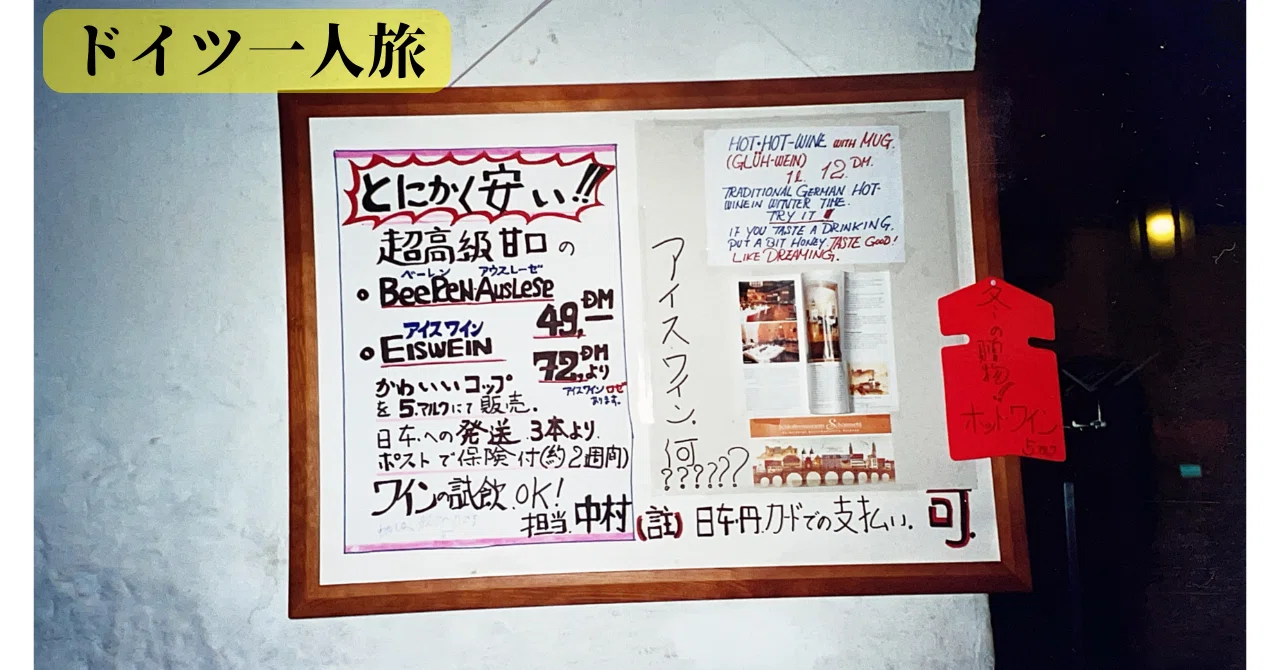 ドイツ一人旅
とにかく安い!!
超高級甘口の
ベーレン アウスレーゼ
BEERENAUSLESE
49,-DM
アイスワイン
EISWEIN
72,-DMより
アイスワインロゼ
あります。
かわいいコップ
を5.マルクにて販売.
日本への発送.3本より.
ポストで保険付(約2週間)
ワインの試飲OK!
担当.中村
HOT・HOT-WINE WITH MUG.
(GLÜH-WEIN)
1l. 12 DM.
TRADITIONAL GERMAN HOT-
WINE IN WINTER TIME.
TRY IT!
IF YOU TASTE A DRINKING.
PUT A BIT HONEY. TASTE GOOD!
LIKE DREAMING.
アイスワイン.何??????
(註)日本円.カードでの支払い.可.
冬の贈物!
ホットワイン